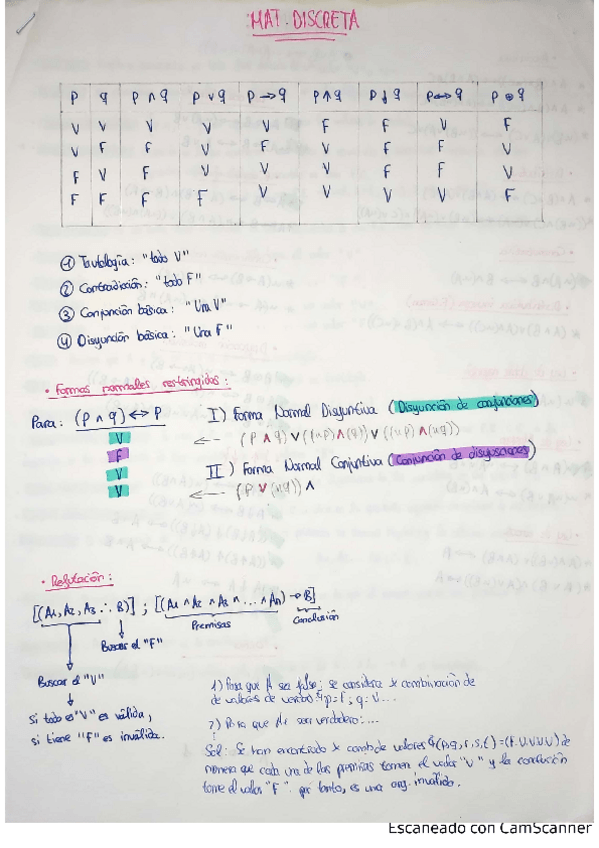 MAT. DISCRETA
P q P ∧ q P ∨ q P → q P ↑ q P ↓ q P ↔ q P ⊕ q
V V V V V F F V F
V F F V F V F F V
F V F V V V F F V
F F F F V V V V F
① Tautología: "todo V"
② Contradicción: "todo F"
③ Conjunción básica: "Una V"
④ Disyunción básica: "Una F"
• Formas normales restringidas:
Para: (P ∧ q) ↔ P
I) Forma Normal Disjuntiva (Disyunción de conjunciones)
V
← (P ∧ q) ∨ ((∼P) ∧ (q)) ∨ ((∼P) ∧ (∼q))
F
II) Forma Normal Conjuntiva (Conjunción de disyunciones)
V
V
← (P ∨ (∼q)) ∧
• Refutación:
[(A1, A2, A3 ∴ B)] ; [(A1 ∧ A2 ∧ A3 ∧ ... ∧ An) → B]
Premisas
Conclusión
Buscar el "F"
Buscar el "V"
si todo es "V" es válida,
si tiene "F" es inválida.
1) Para que A sea falso: se considera combinación de
de valores de verdad:
2) Para que A1 sea verdadero: ...
Sol: Se han encontrado comb. de valores (p,q,r,s,t) = (F,V,V,V,V) de
manera que cada una de las premisas tomen el valor "V" y la conclusión
tome el valor "F" por tanto, es una arg. inválido.
Escaneado con CamScanner